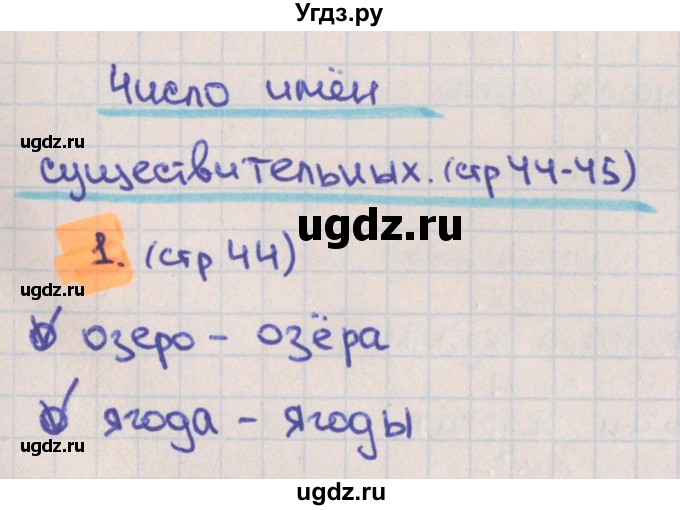 Угдз.ру
Число имён
ugdz.ru
существительных. (стр 44-45)
ugdz.ru
1. (стр 44)
ugdz.ru
озеро - озёра
ugdz.ru
ягода - ягоды
ugdz.ru
ugdz.ru